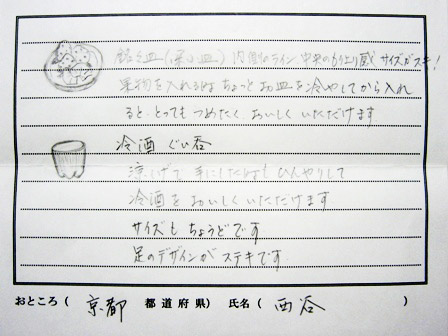 銘々皿(深小皿) 内側のライン 中央のもり上り感 サイズがステキ!
果物を入れる時はちょっとお皿を冷やしてから入れ
ると、とってもつめたく おいしく いただけます
冷酒 ぐい呑
注いで 手にした時に ひんやりして
冷酒を おいしく いただけます
サイズも ちょうどです
足のデザインが ステキです
おところ( 京都 都道府県) 氏名( 西谷 )